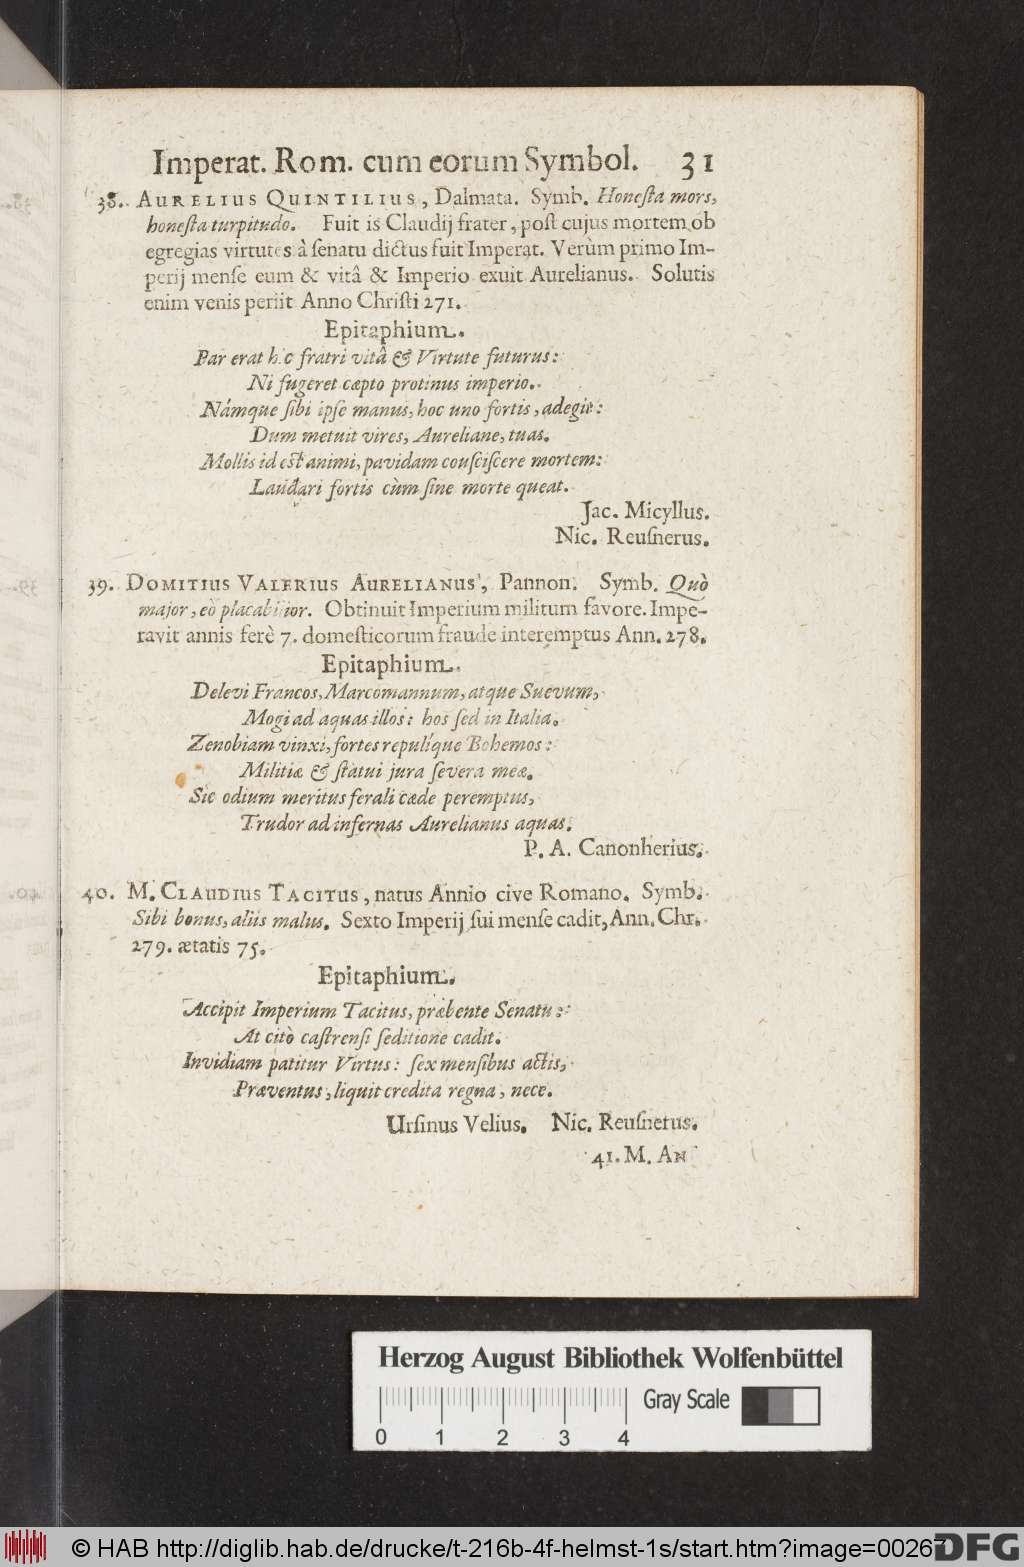 Imperat. Rom. cum eorum Symbol. 31
38. AURELIUS QUINTILIUS, Dalmata. Symb. Honesta mors,
honesta turpitudo. Fuit is Claudij frater, post cujus mortem ob
egregias virtutes à senatu dictus fuit Imperat. Verùm primo Im-
perij mense eum & vitâ & Imperio exuit Aurelianus. Solutis
enim venis periit Anno Christi 271.
Epitaphium.
Par erat hic fratri vitâ & Virtute futurus:
Ni fugeret cæpto protinus imperio.
Námque sibi ipse manus, hoc uno fortis, adegit:
Dum metuit vires, Aureliane, tuas.
Mollis id est animi, pavidam consciscere mortem:
Laudari fortis cùm sine morte queat.
Jac. Micyllus.
Nic. Reusnerus.
39. DOMITIUS VALERIUS AURELIANUS, Pannon. Symb. Quò
major, eò placabilior. Obtinuit Imperium militum favore. Impe-
ravit annis ferè 7. domesticorum fraude interemptus Ann. 278.
Epitaphium.
Delevi Francos, Marcomannum, atque Suevum,
Mogi ad aquas illos: hos sed in Italia.
Zenobiam vinxi, fortes repulíque Bohemos:
Militiæ & statui jura severa meæ.
Sic odium meritus ferali cæde peremptus,
Trudor ad infernas Aurelianus aquas.
P. A. Canonherius.
40. M. CLAUDIUS TACITUS, natus Annio cive Romano. Symb.
Sibi bonus, aliis malus. Sexto Imperij sui mense cadit, Ann. Chr.
279. ætatis 75.
Epitaphium.
Accipit Imperium Tacitus, præbente Senatu:
At citò castrensi seditione cadit.
Invidiam patitur Virtus: sex mensibus actis,
Præventus, liquit credita regna, nece.
Ursinus Velius. Nic. Reusnerus.
41. M. AN
Herzog August Bibliothek Wolfenbüttel
0 1 2 3 4 Gray Scale
© HAB http://diglib.hab.de/drucke/t-216b-4f-helmst-1s/start.htm?image=00267
DFG